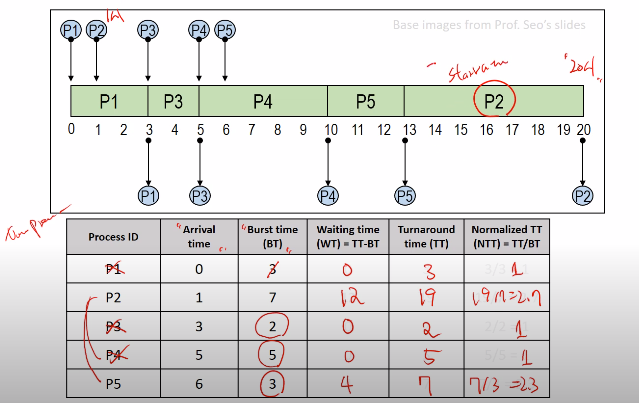 Base images from Prof. Seo's slides
P1 P2 P3 P4 P5
starvation
"20초"
P1 P3 P4 P5 P2
0 1 2 3 4 5 6 7 8 9 10 11 12 13 14 15 16 17 18 19 20
P1 P3 P4 P5 P2
Process ID "Arrival time" "Burst time (BT)" Waiting time (WT) = TT-BT Turnaround time (TT) Normalized TT (NTT) = TT/BT
P1 0 3 0 3 1
P2 1 7 12 19 19/7=2.7
P3 3 2 0 2 1
P4 5 5 0 5 1
P5 6 3 4 7 7/3 =2.3